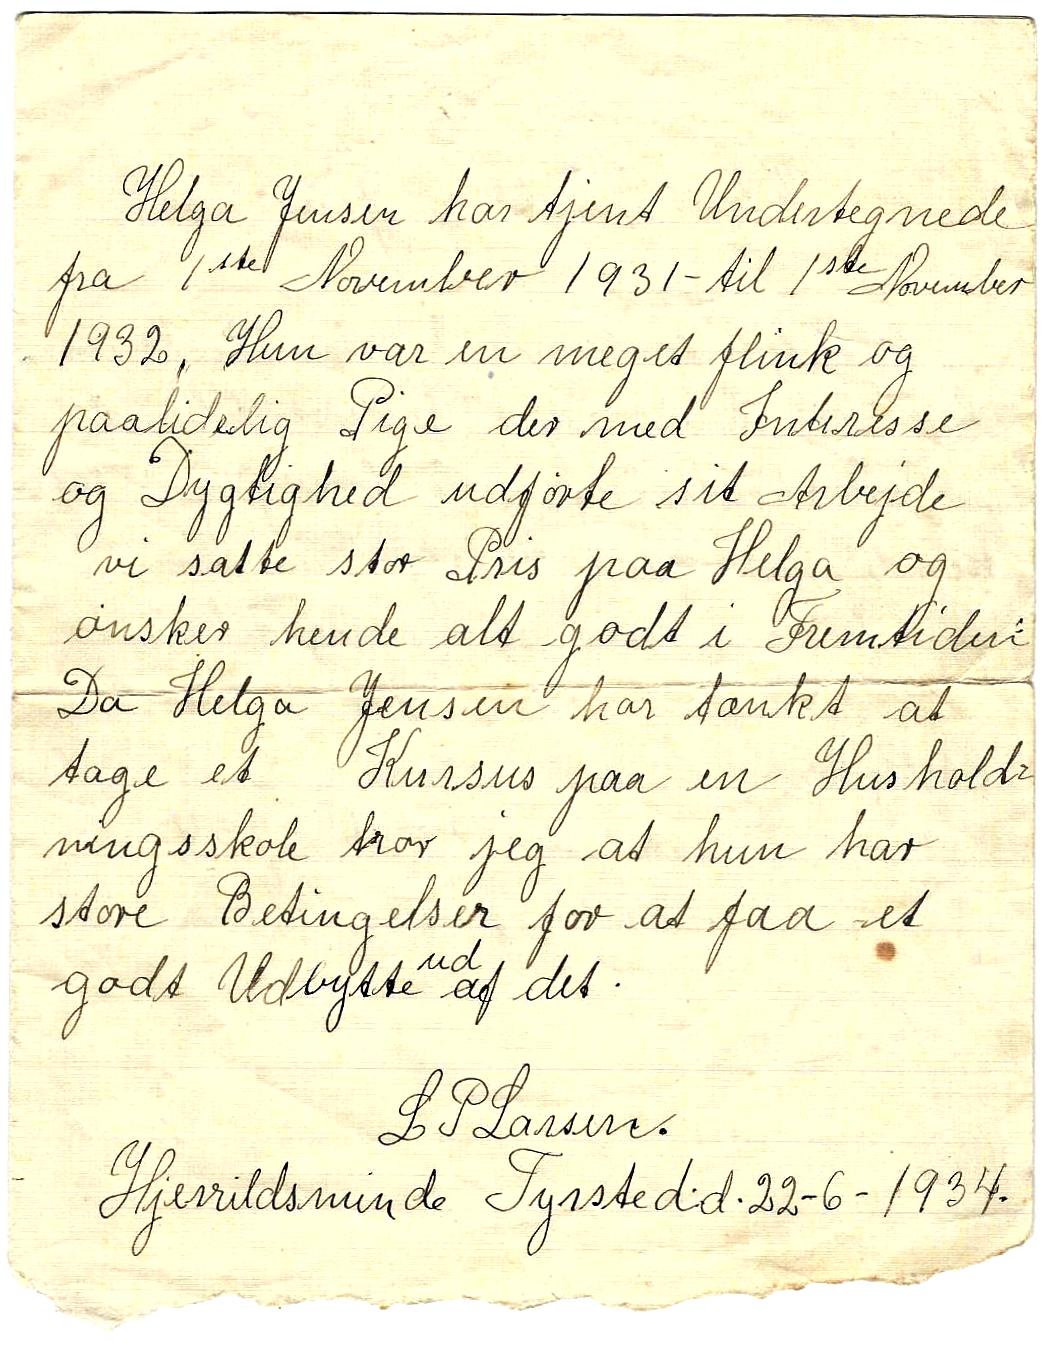 Helga Jensen har tjent Undertegnede
fra 1ste November 1931 - til 1ste November
1932, Hun var en meget flink og
paalidelig Pige der med Interesse
og Dygtighed udførte sit Arbejde
vi satte stor Pris paa Helga og
ønsker hende alt godt i Fremtiden:
Da Helga Jensen har tænkt at
tage et Kursus paa en Hushold=
ningsskole tror jeg at hun har
store Betingelser for at faa et
godt Udbytte ud af det.
L P Larsen.
Hjerrildsminde Tyrsted. d. 22-6-1934.